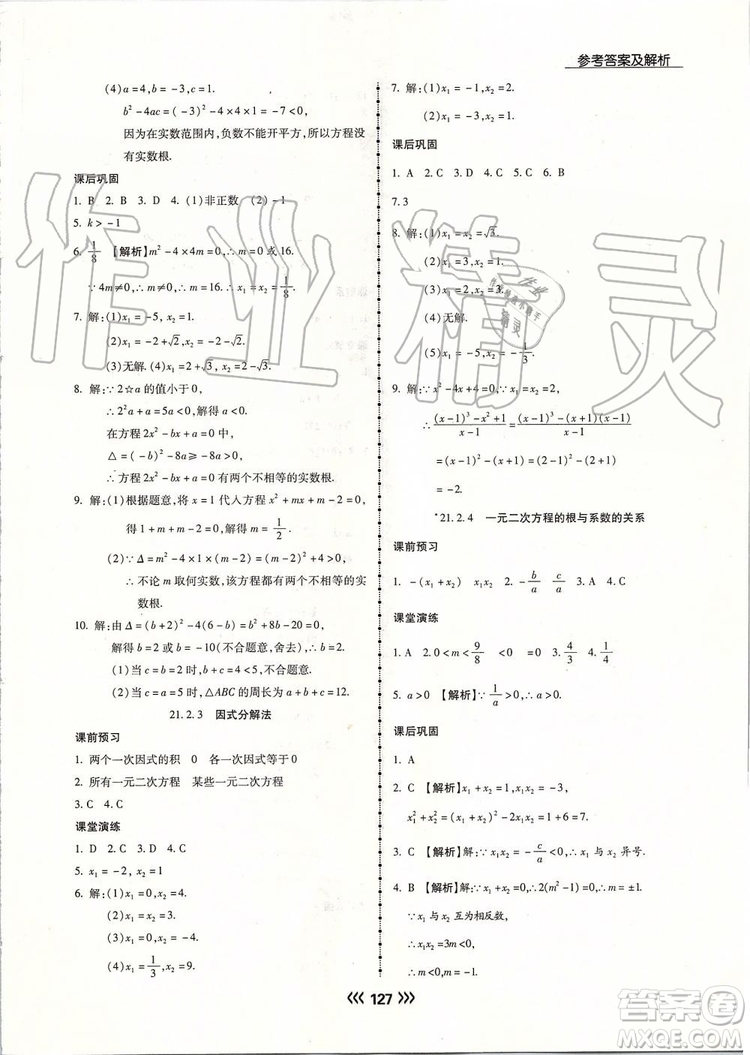 参考答案及解析
(4)a=4,b=-3,c=1.
b²-4ac=(-3)²-4×4×1=-7<0,
因为在实数范围内,负数不能开平方,所以方程没
有实数根.
课后巩固
1. B 2. B 3. D 4. (1)非正数 (2)-1
5. k>-1
6. 1/8 【解析】m²-4×4m=0,∴m=0或16.
∵4m≠0,∴m=16,∴x₁=x₂=1/8.
7. 解:(1)x₁=x₂=2.
(2)x₁=-2+√2,x₂=-2-√2.
(3)无解.(4)x₁=2+√3,x₂=2-√3.
8. 解:∵2☆a的值小于0,
∴2²a+a=5a<0,解得a<0.
在方程2x²-bx+a=0中,
Δ=(-b)²-8a≥-8a>0,
∴方程2x²-bx+a=0有两个不相等的实数根.
9. 解:(1)根据题意,将x=1代入方程x²+mx+m-2=0,
得1+m+m-2=0,解得m=1/2.
(2)∵Δ=m²-4×1×(m-2)=(m-2)²+4>0,
∴不论m取何实数,该方程都有两个不相等的实
数根.
10. 解:由Δ=(b+2)²-4(6-b)=b²+8b-20=0,
解得b=2或b=-10(不合题意,舍去);
(1)当c=2时,b=2,c+b=4<5,不合题意;
(2)当c=5时,△ABC的周长为a+b+c=12.
21.2.3 因式分解法
课前预习
1. 两个一次因式的积 0 各一次因式等于0
2. 所有一元二次方程 某些一元二次方程
3. C 4. C
课堂演练
1. D 2. D 3. D 4. C
5. x₁=-2,x₂=1
6. 解:(1)x₁=0,x₂=4.
(2)x₁=0,x₂=4.
(3)x₁=0,x₂=-4.
(4)x₁=1/3,x₂=9.
7. 解:(1)x₁=-1,x₂=2.
(2)x₁=-3,x₂=1.
课后巩固
1. A 2. C 3. D 4. C 5. C 6. B
7.3
8. 解:(1)x₁=x₂=√3.
(2)x₁=2,x₂=3.
(3)x₁=0,x₂=2.
(4)无解.
(5)x₁=-3,x₂=-1/3.
9. 解:∵x²-4x+4=0,∴x₁=x₂=2,
∴((x-1)³-x²+1)/(x-1)=((x-1)³-(x+1)(x-1))/(x-1)
=(x-1)²-(x+1)=(2-1)²-(2+1)
=-2.
*21.2.4 一元二次方程的根与系数的关系
课前预习
1. -(x₁+x₂) x₁x₂ 2. -b/a c/a 3. A 4. C
课堂演练
1. A 2.0<m<9/8 <0 =0 3. 4/3 4. 1/4
5. a>0 【解析】∵x₁x₂=1/a>0,∴a>0.
课后巩固
1. A
2. C 【解析】∵x₁+x₂=1,x₁x₂=-3,
x₁²+x₂²=(x₁+x₂)²-2x₁x₂=1+6=7.
3. C 【解析】∵x₁x₂=-c/a<0,∴x₁与x₂异号.
4. B 【解析】∵x₁+x₂=0,∴2(m²-1)=0,∴m=±1.
∵x₁与x₂互为相反数,
∴x₁x₂=3m<0,
∴m<0,∴m=-1.
127
作业精灵
答案圈
MXQE.COM